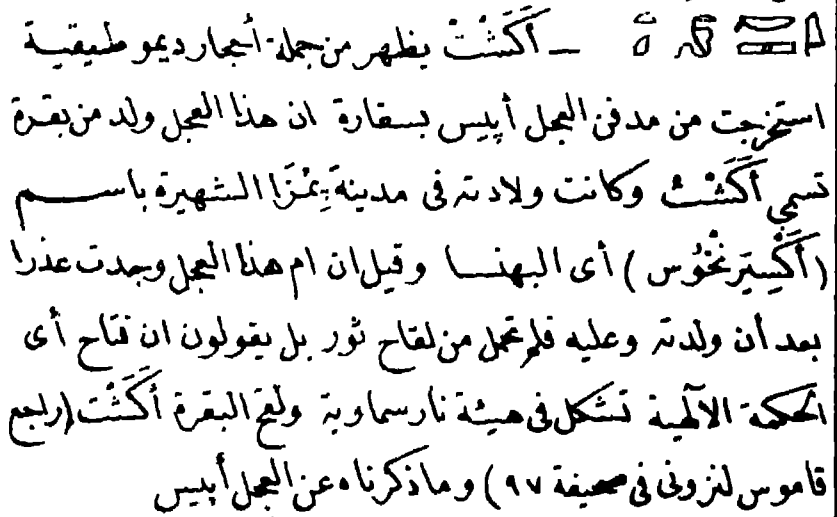 — أَكَشْتْ يظهر من جملة أحجار ديموطيقية
استخرجت من مدفن العجل أپيس بسقارة ان هذا العجل ولد من بقرة
تسمى أَكَشْتْ وكانت ولادته فى مدينة پِمْزَا الشهيرة باسم
(أَكْسِيَرنْخُوس) أى البهنسا وقيل ان ام هذا العجل وجدت عذرا
بعد أن ولدته وعليه فلم تحمل من لقاح ثور بل يقولون ان فتاح أى
الحكمة الآلهية تشكل فى هيئة نار سماوية ولقح البقرة أَكَشْت (راجع
قاموس لنزونى فى صحيفة ٩٧) وما ذكرناه عن العجل أپيس